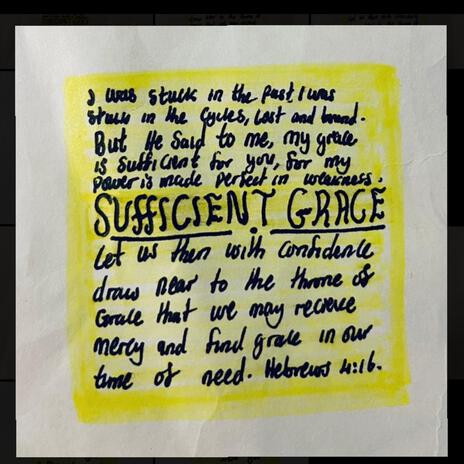 I was stuck in the past I was
stuck in the cycles, lost and bound.
But He said to me, my grace
is sufficient for you, for my
power is made perfect in weakness.
SUFFICIENT GRACE
Let us then with confidence
draw near to the throne of
Grace that we may recieve
mercy and find grace in our
time of need. Hebrews 4:16.